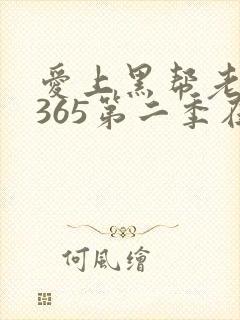 愛上黑帮老
365第二季在
何風繪